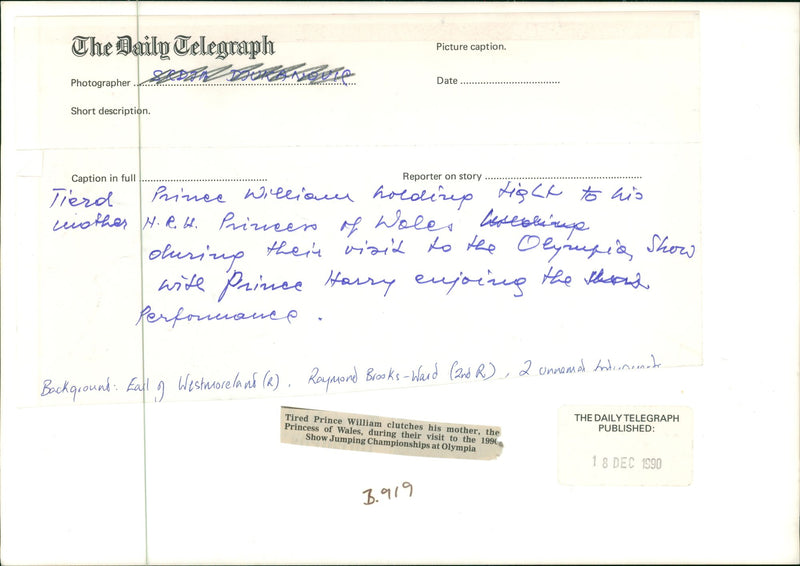 The Daily Telegraph
Picture caption.
Photographer
Date
Short description.
Caption in full
Reporter on story
Tierd Prince William holding tight to his
mother H.R.H. Princess of Wales holding
during their visit to the Olympia, Show
with Prince Harry enjoing the show
Performance.
Background: Earl of Westmoreland (R), Raymond Brooks-Ward (2nd R), 2 unnamed
Tired Prince William clutches his mother, the
Princess of Wales, during their visit to the 1990
Show Jumping Championships at Olympia
THE DAILY TELEGRAPH
PUBLISHED:
18 DEC 1990
B.919